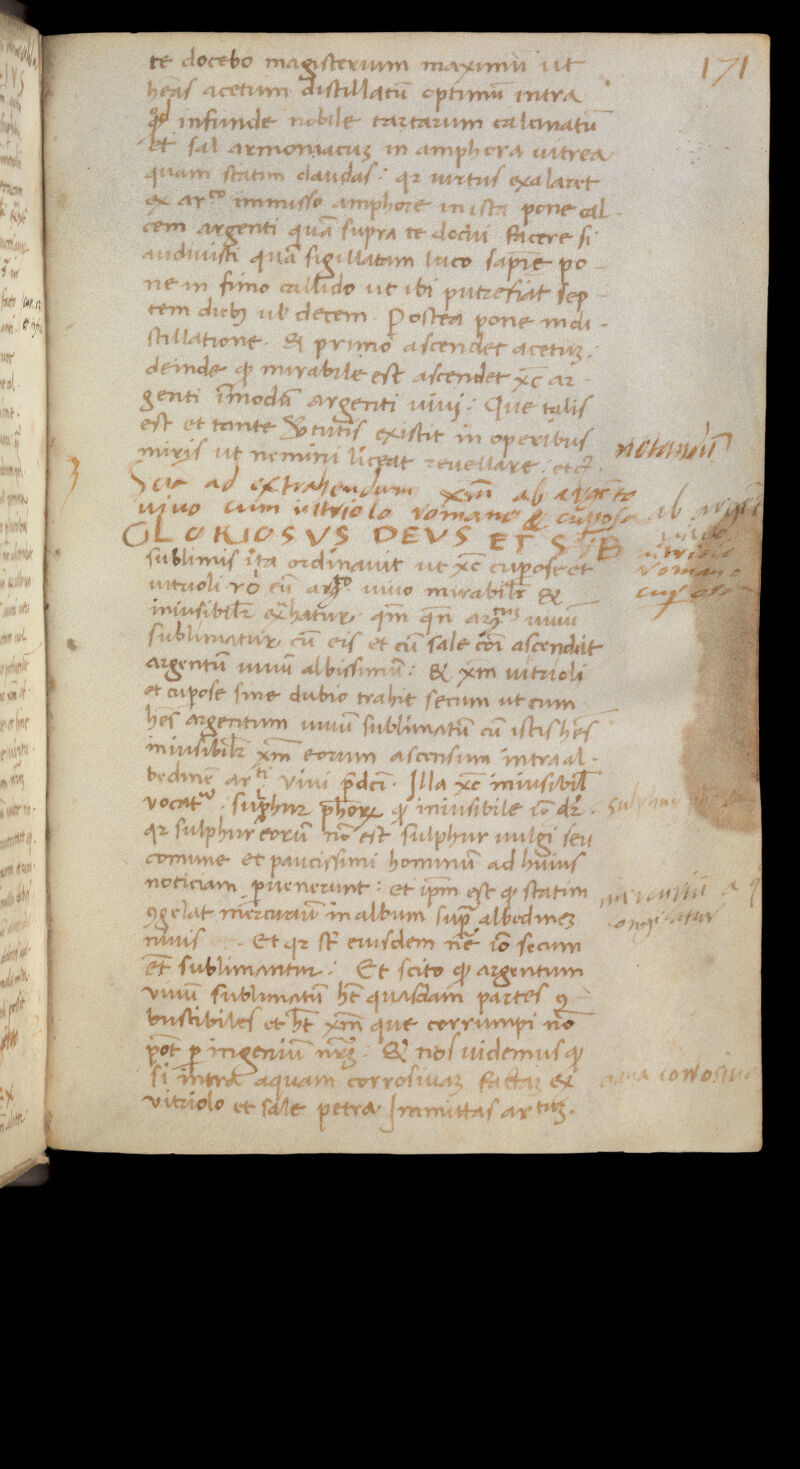 171
te docebo magisterium maximū ut
heās acetum distillatū optimū intra
qđ infunde nobile tartarum calcinatū
et sal armoniacuꝫ in amphora uitrea
quam statim claudas: qꝛ uirtus exalaret
ex arto immisso amphore in ista pone cal-
cem argenti quā supra te docui facere si
audiuisti quā sigillatam luto sapīe po-
ne in fimo callido ut ibi putrefiāt sep-
tem diebꝫ ul decem. Postea pone in di-
stillatione. Et primo ascendet acetuꝫ.
deinde qđ mirabile est ascendet xc̄ ar-
genti īmodū argenti uiui: Que talis
est et tante v̄tutis existit in operibus
miris ut nemini liceat reuellare: etc̄.
notandū
Scīa ad extrahendum xm̄ ab argēto
uiuo cum uitriolo romano & cuposa
GLORIOSVS DEVS ET
sublimis ita ordinauit ut xc̄ cupose et
uitrioli ro eū argto uiuo mirabilr̄ &
iniusibilr̄ exͭhatur, qm̄ qn̄ artum uiuū
sublimatur cū eis et cū sale cōi ascendit
argentū uiuū albissimū: & xm̄ uitrioli
et cupose sine dubio trahit secum ut cum
hēs argentum uiuū sublimatū cū istis hēs
iniusibilr̄ xm̄ eorum ascensum intra al-
bedinē arti viui p̄dci. Illa xc̄ iniusibil̄
vocatur sulphur phōrꝝ qđ iniusibile iō dr̄.
qꝛ sulphur eorū nō est sulphur uulgi seu
comune et paucissimi hominū ad huius
noticiam puenerunt: et ipm̄ est qđ statim
ꝯgelat mercuriū in album supra albedineꝫ
niuis. Et qꝛ st̄ eiusdem ne iō secum
et̄ sublimantur: Et scito qđ argentum
viuū sublimatū ht̄ quasdam partes ꝯ-
bustibiles et ht̄ xm̄ que corrumpi nō
pōt p ingeniū nr̄ꝫ: & nos uidemus qđ
si intra aquam corrosiuaꝫ factaꝫ ex
vitriolo et sale petra Immittas artuꝫ.
ab argē
uiuo
uitriolo
romano
cuposa
sulphur
mercuriū
congelatur
aqua corrosiua